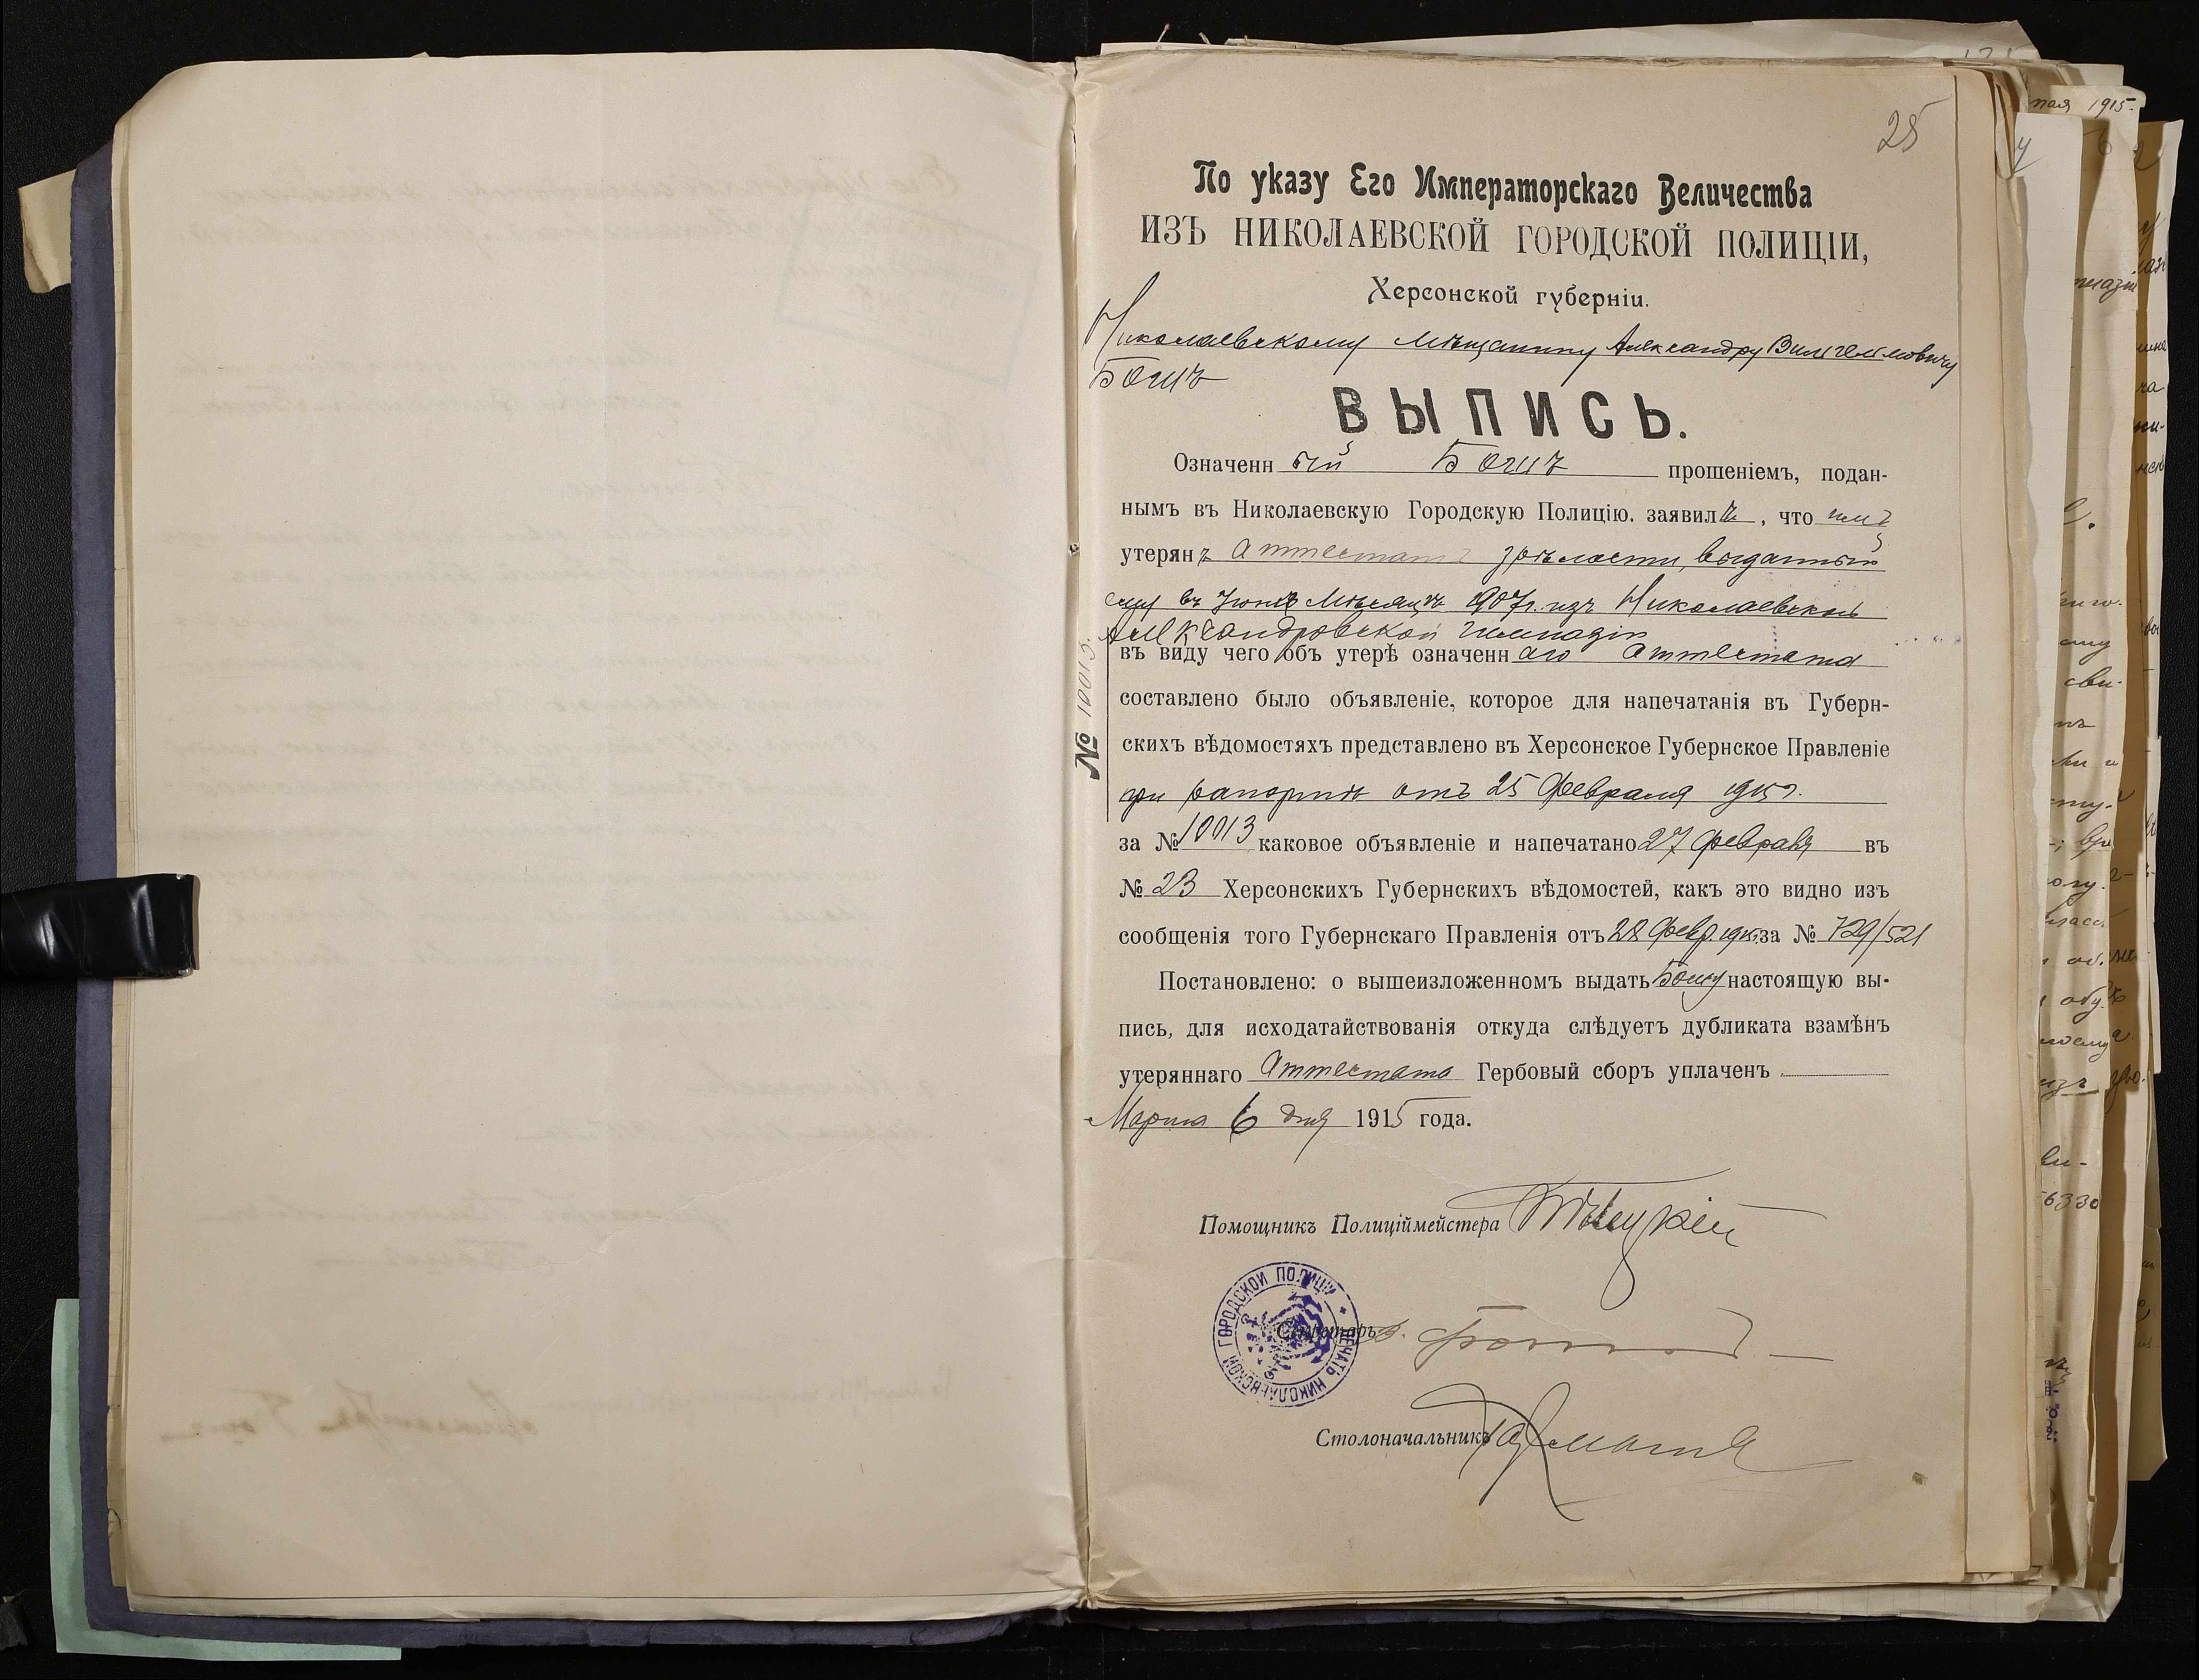 25
По указу Его Императорскаго Величества
ИЗЪ НИКОЛАЕВСКОЙ ГОРОДСКОЙ ПОЛИЦІИ,
Херсонской губерніи.
Николаевскому мѣщанину Александру Вильгельмовичу
Бошъ
ВЫПИСЬ.
Означенный Бошъ прошеніемъ, подан-
нымъ въ Николаевскую Городскую Полицію. заявилъ, что имъ
утерянъ Аттестатъ зрѣлости, выданный
ему въ Іюнѣ Мѣсяцѣ 1907 г. изъ Николаевской
Александровской гимназіи
въ виду чего объ утерѣ означеннаго Аттестата
составлено было объявленіе, которое для напечатанія въ Губерн-
скихъ вѣдомостяхъ представлено въ Херсонское Губернское Правленіе
при рапортѣ отъ 25 Февраля 1915 г.
за № 10013 каковое объявленіе и напечатано 27 Февраля въ
№ 23 Херсонскихъ Губернскихъ вѣдомостей, какъ это видно изъ
сообщенія того Губернскаго Правленія отъ 28 Февр. 1915 за № 729/521
Постановлено: о вышеизложенномъ выдать Бошу настоящую вы-
пись, для исходатайствованія откуда слѣдуетъ дубликата взамѣнъ
утеряннаго Аттестата Гербовый сборъ уплаченъ
Марта 6 дня 1915 года.
№ 10013.
Помощникъ Полиціймейстера
Секретарь
ПЕЧАТЬ НИКОЛАЕВСКОЙ ГОРОДСКОЙ ПОЛИЦІИ
Столоначальникъ
мая 1915.
6330